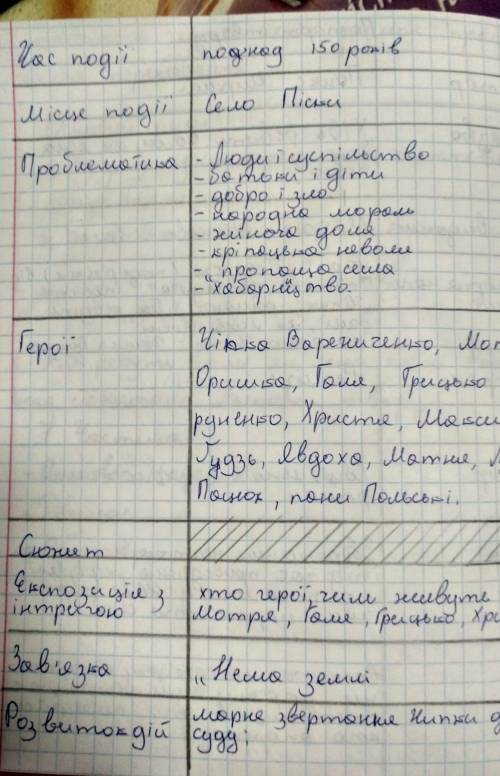 Час події понад 150 років
Місце події Село Піски
Проблематика - Люди і суспільство
- батьки і діти
- добро і зло
- народна мораль
- жіноча доля
- кріпацька неволя
- „пропаща сила
- хабарництво.
Герої Чіпка Варениченко, Мот
Оришка, Галя, Грицько
руненко, Христя, Макси
Гудзь, Явдоха, Матня, Л
Пацюк, пани Польські.
Сюжет
Експозиція з хто герої, чим живуть
інтригою Мотря, Галя, Грицько, Хри
Зав'язка „Нема землі
Розвиток дій марне звертання Чіпки д
суду;